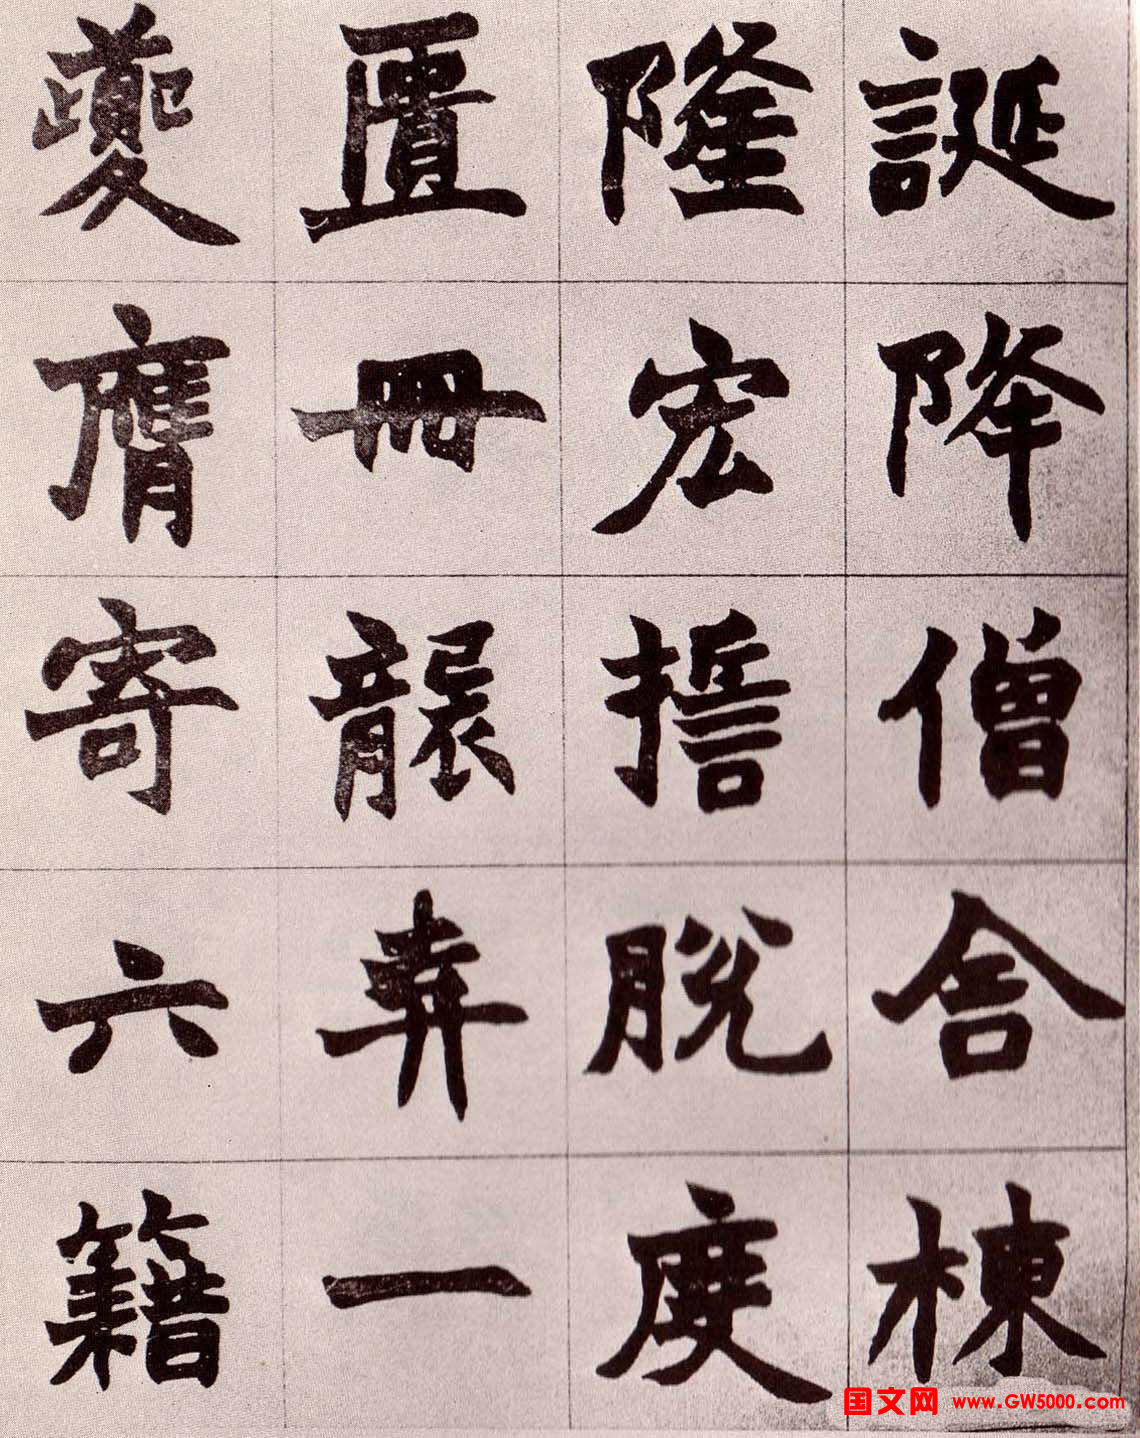 誕降僧舍棟
隆宏誓脫度
匱冊襲弆一
夔膺寄六籍
国文网 www.GW5000.com